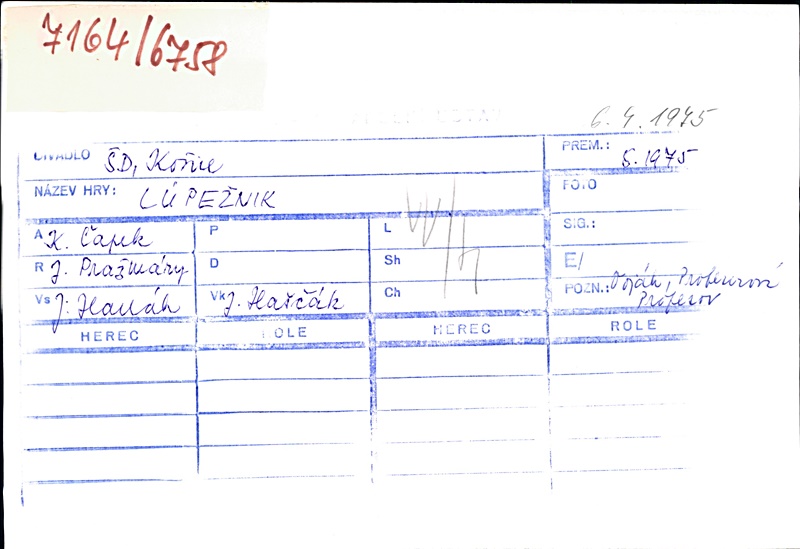 7164/6758
6. 4. 1975
DIVADLO ŠD, Košice
PREM.: 5. 1975
NÁZEV HRY: LÚPEŽNIK
FOTO
A K. Čapek P L SIG.:
R J. Pražmáry D Sh E/
Vs J. Hanák Vk J. Haščák Ch POZN.: Voják, Profesorová
Profesor
HEREC ROLE HEREC ROLE